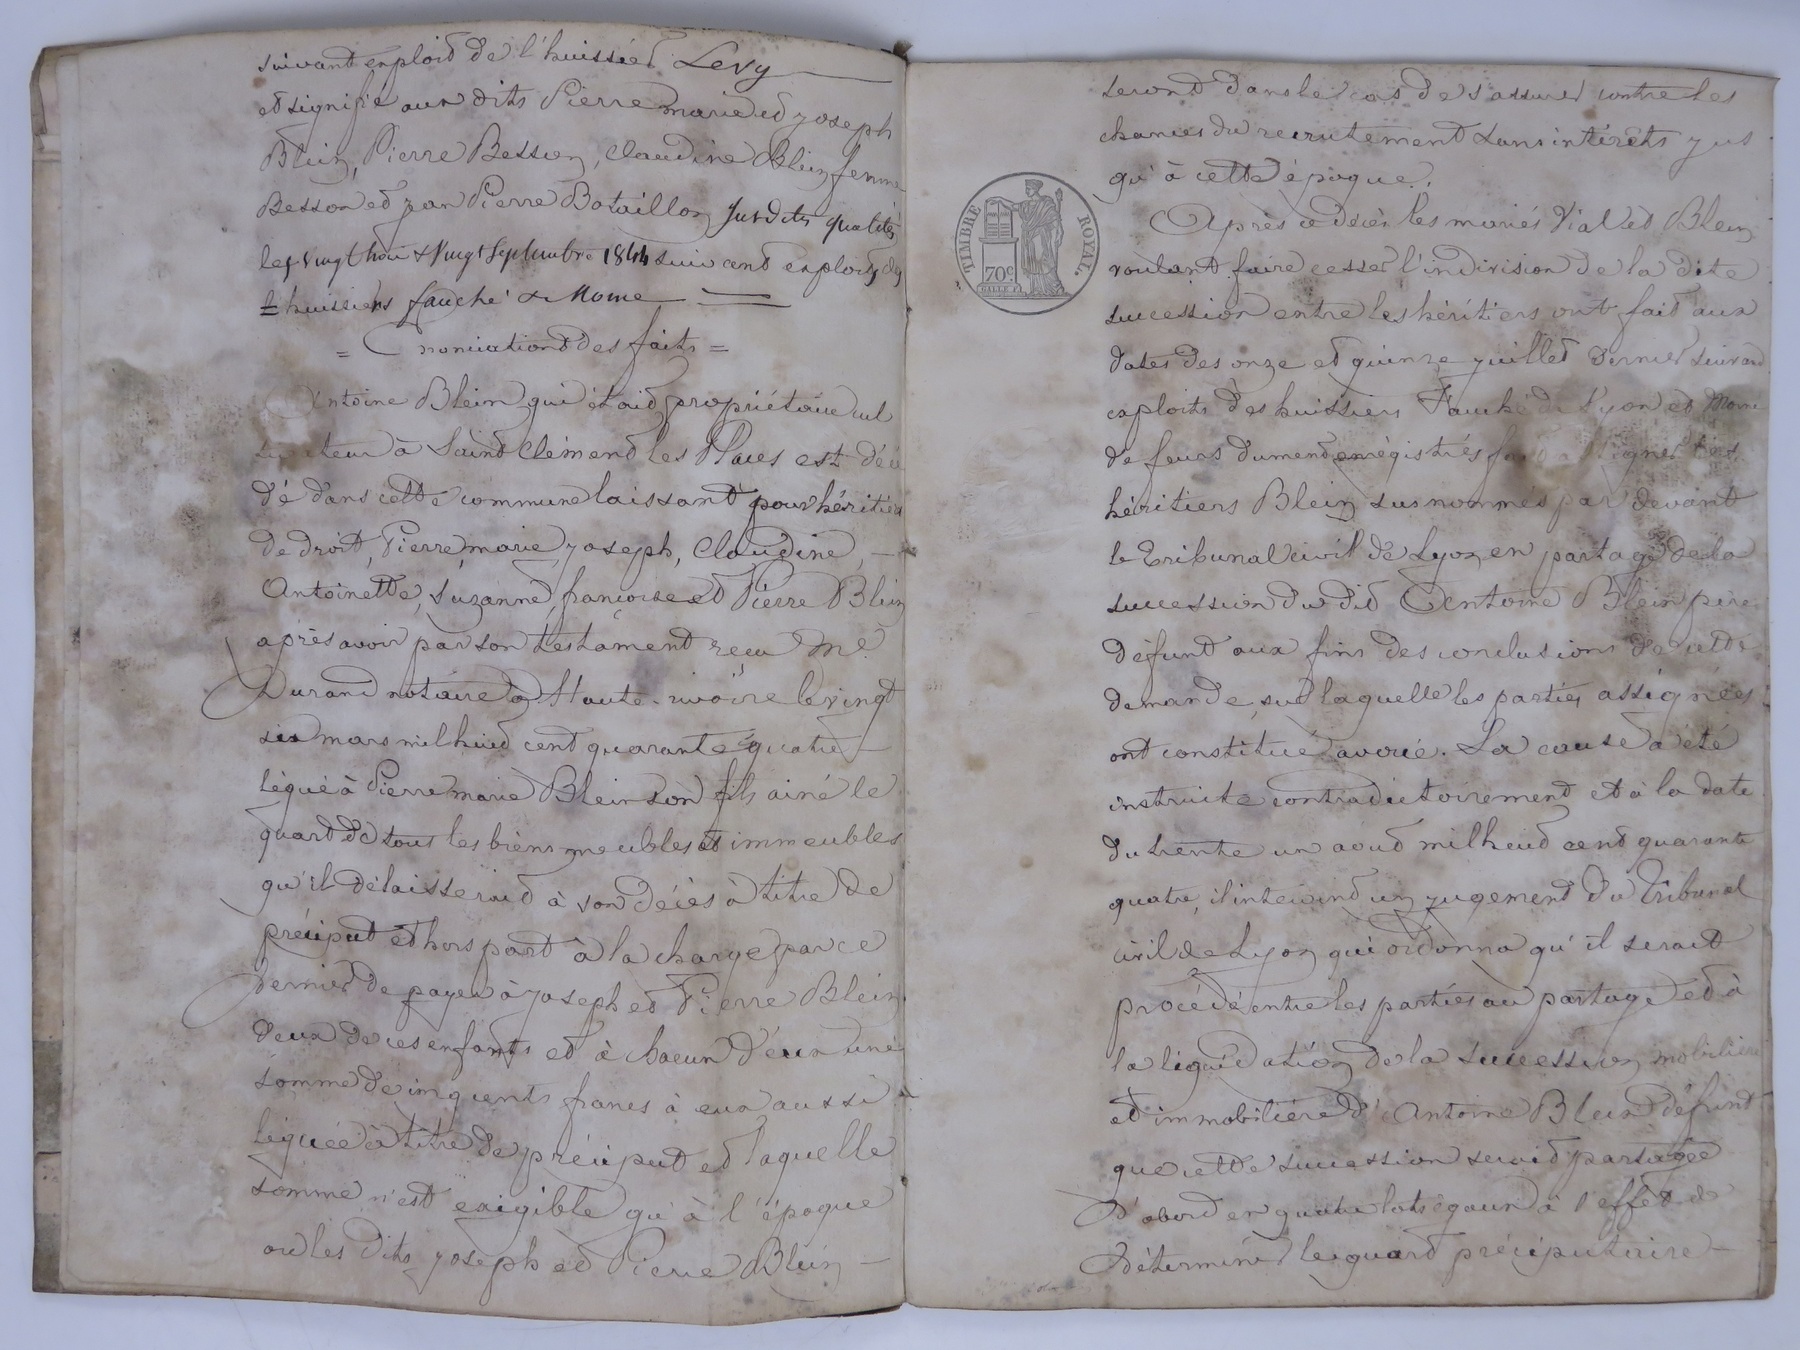 suivant exploit de l'huissier Levy
et signifié aux dits Pierre marie et joseph
Blein, Pierre Besson, Claudine Blein femme
Besson et jean Pierre Bataillon susdites qualités
les vingt huit & vingt Septembre 1844 suivant exploits des
huissiers fauché & Mome
= Enonciation des faits =
Antoine Blein qui était propriétaire cul
tivateur à Saint Clément les Places est décé
dé dans cette commune laissant pour héritiers
de droit, Pierre marie, joseph, Claudine,
Antoinette, Suzanne, françoise et Pierre Blein
après avoir par son testament reçu Me
Durand notaire à Haute-rivoire le vingt
six mars mil huit cent quarante quatre
légué à Pierre marie Blein son fils ainé le
quart de tous les biens meubles et immeubles
qu'il délaisserait à son décès à titre de
préciput et hors part à la charge par ce
dernier de payer à joseph et Pierre Blein
deux de ces enfants et à chacun d'eux une
somme de cinq cents francs à eux aussi
léguée à titre de préciput et laquelle
somme n'est exigible qu'à l'époque
où les dits joseph et Pierre Blein
seront dans le cas de s'assurer contre les
chances du recrutement sans intérêts jus
qu'à cette époque.
TIMBRE ROYAL
70c
Après ce décès les mariés Vial et Blein
voulant faire cesser l'indivision de la dite
succession entre les héritiers ont fait aux
dates des onze et quinze juillet dernier suivant
exploits des huissiers Fauché de Lyon et Mome
de feurs dument enrégistrés fait assigner les
héritiers Blein susnommés par devant
le Tribunal civil de Lyon en partage de la
succession du dit Antoine Blein père
défunt aux fins des conclusions de cette
demande, sur laquelle les parties assignées
ont constitué avoué. La cause a été
instruite contradictoirement et à la date
du trente un aout mil huit cent quarante
quatre, il intervint un jugement du Tribunal
civil de Lyon qui ordonna qu'il serait
procédé entre les parties au partage et à
la liquidation de la succession mobilière
et immobilière d'Antoine Blein défunt
que cette succession serait partagée
d'abord en quatre lots égaux à l'effet de
déterminer le quart préciputaire